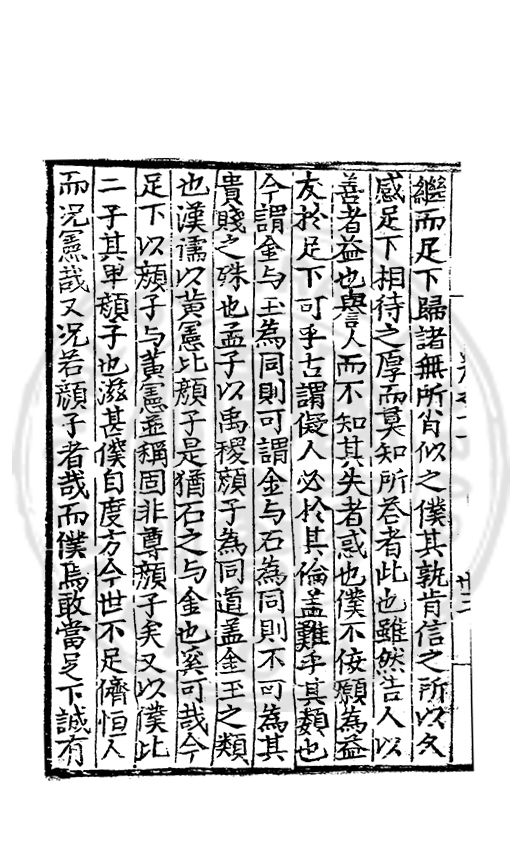 繼而足下歸諸無所省似之僕其孰肯信之所以久
感足下相待之厚而莫知所荅者此也雖然告人以
善者益也譽人而不知其失者惑也僕不佞願為益
友於足下可乎古謂儗人必於其倫盖難乎其類也
今謂金与玉為同則可謂金与石為同則不可為其
貴賤之殊也孟子以禹稷顔子為同道盖金玉之類
也漢儒以黄憲比顔子是猶石之与金也奚可哉今
足下以顔子与黄憲並稱固非尊顔子矣又以僕比
二子其卑顔子也滋甚僕自度方今世不足儕恒人
而况憲哉又况若顔子者哉而僕焉敢當足下誠有